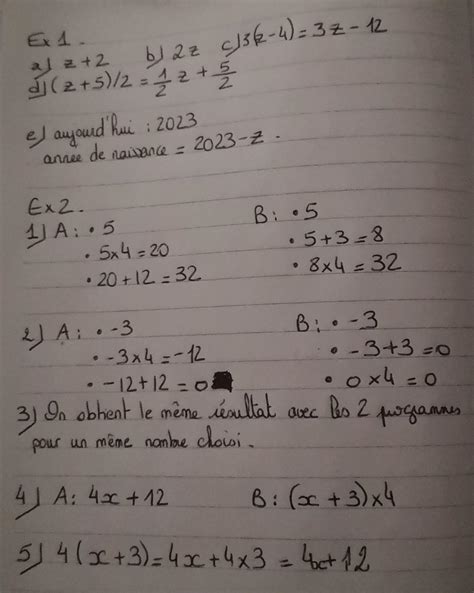 Ex 1.
a) z + 2 b) 2z c) 3(z - 4) = 3z - 12
d) (z + 5)/2 = 1/2 z + 5/2
e) aujourd'hui : 2023
année de naissance = 2023 - z.
Ex 2.
1) A : • 5 B : • 5
• 5 x 4 = 20 • 5 + 3 = 8
• 20 + 12 = 32 • 8 x 4 = 32
2) A : • -3 B : • -3
• -3 x 4 = -12 • -3 + 3 = 0
• -12 + 12 = 0 • 0 x 4 = 0
3) On obtient le même résultat avec les 2 programmes
pour un même nombre choisi.
4) A : 4x + 12 B : (x + 3) x 4
5) 4(x + 3) = 4x + 4 x 3 = 4x + 12